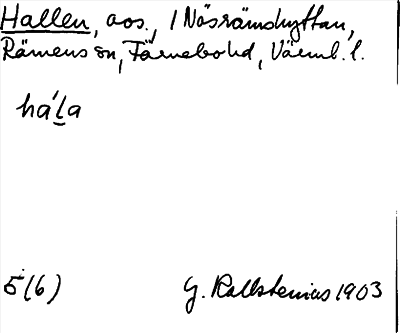 Hallen, aos., / Näsrämshyttan,
Rämens sn, Färnebo hd, Värml. l.
há'ḻa
5(6) G. Kallstenius 1903